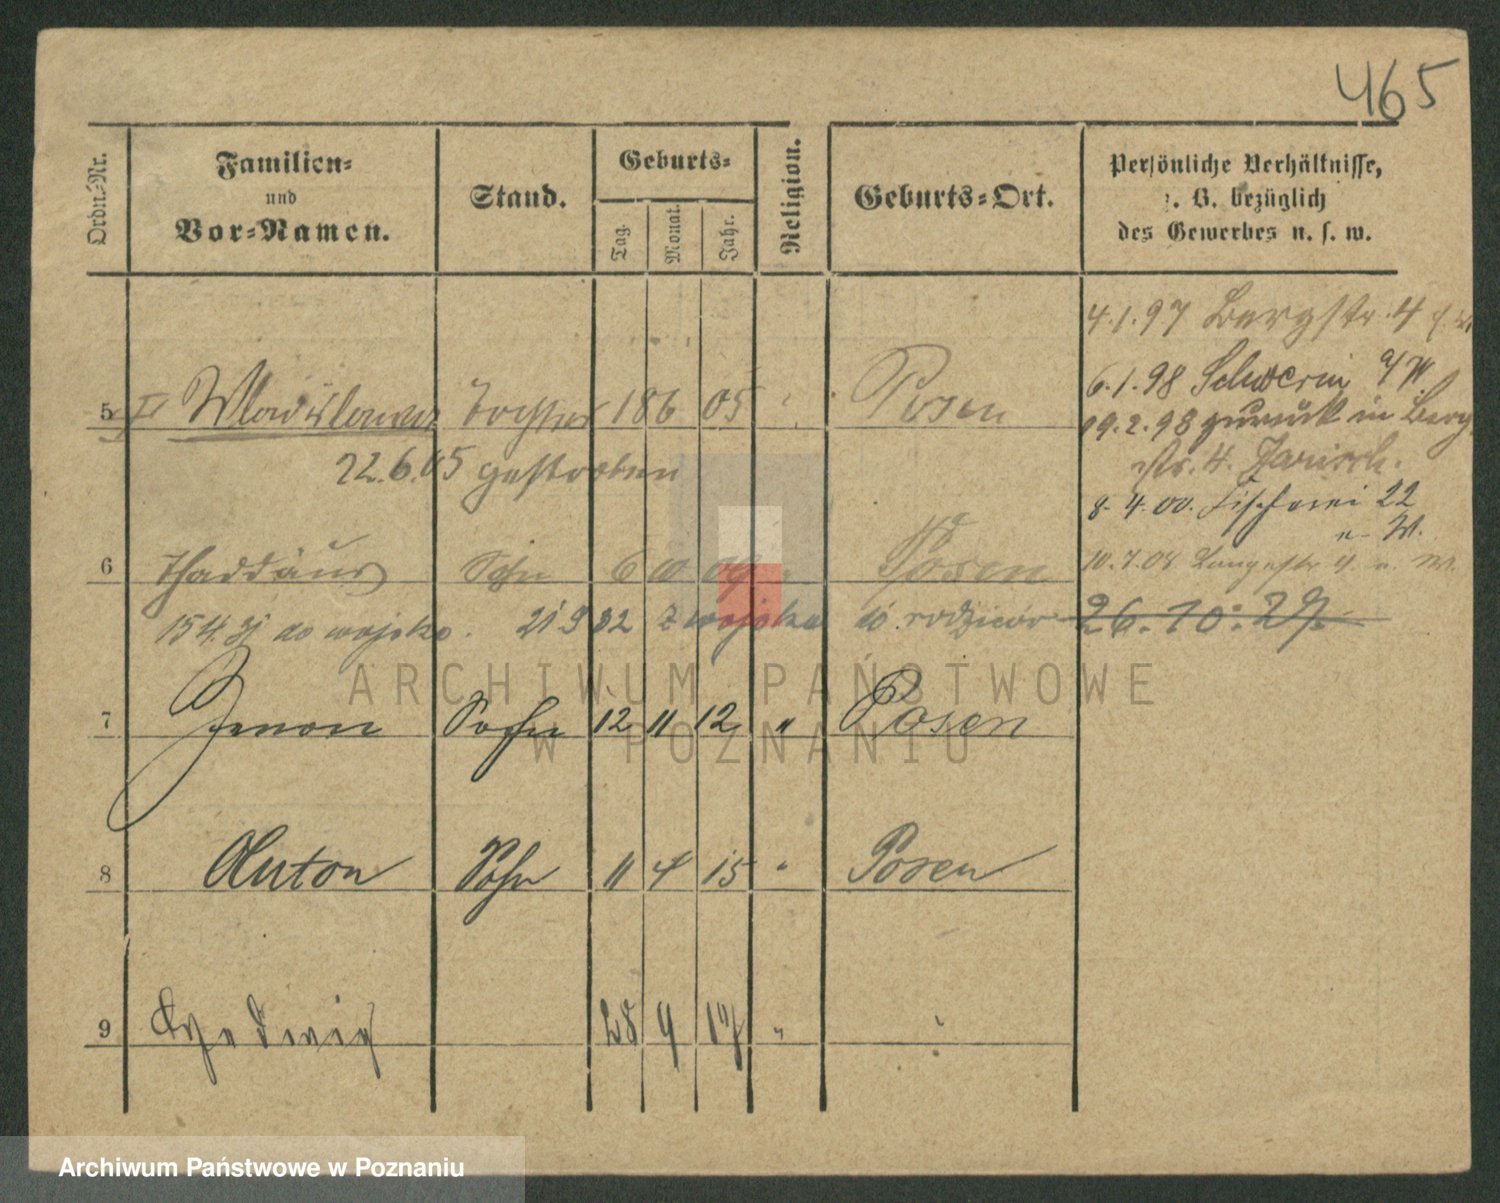 465
Ordn.-Nr.
Familien-
und
Vor-Namen.
Stand.
Geburts-
Tag.
Monat.
Jahr.
Religion.
Geburts-Ort.
Persönliche Verhältnisse,
z. B. bezüglich
des Gewerbes u. s. w.
4.1.97 Bergstr. 4
6.1.98 Schwerin a/W.
19.2.98 zurück in Berg
str. 4.
8.4.00. Fischerei 22
u. W.
5 Wladislawa Tochter 18 6 05 " Posen
22.6.05 gestorben
6 Thaddäus Sohn 6 10 09 " Posen
10.7.08 Langestr. 4 u. W.
15 4 31 do wojska. 21 9 32 z wojska do rodziców
26.10.27.
7 Zenon Sohn 12 11 12 " Posen
8 Anton Sohn 11 4 15 " Posen
9 Hedwig 28 9 17 " "
ARCHIWUM PAŃSTWOWE
W POZNANIU
Archiwum Państwowe w Poznaniu